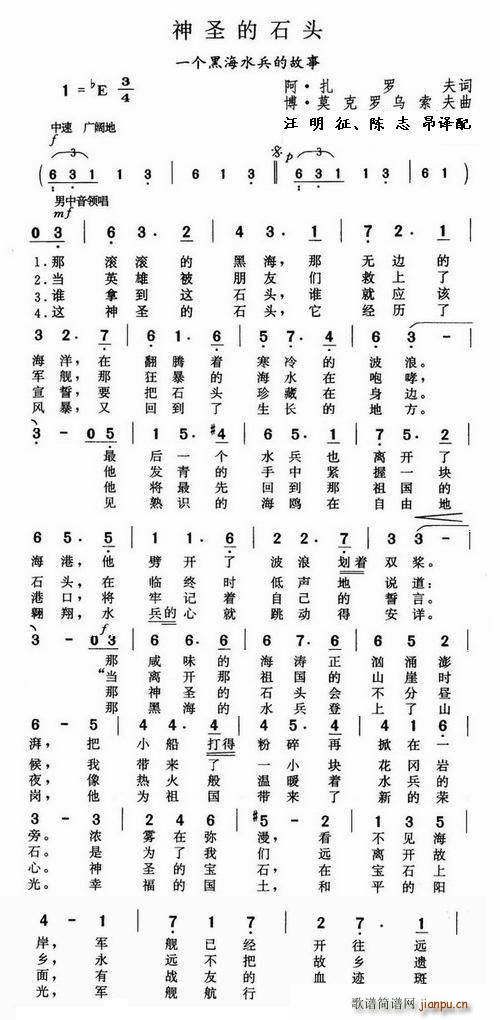 神圣的石头
一个黑海水兵的故事
1=♭E 3/4
阿·扎罗夫词
博·莫克罗乌索夫曲
汪明征、陈志昂译配
中速 广阔地
f
3 3 𝄋 p 3
( 6 3 1 1 3 6 3 1 1 3 | 6 1 )
男中音领唱
mf
0 3 | 6 3· 2 | 4 3· 3 | 7 2· 1 |
1.那滚滚的黑海,那无边的
2.当英雄被朋友们救上了
3.谁拿到这石头,谁就应该
4.这神圣的石头,它经历了
3 2· 7 | 6 1· 6 | 5 7· 4 | 6 3 - |
海洋,在翻腾着寒冷的波浪。
军舰,那狂暴的海水在咆哮,
宣誓,要把石头珍藏在身边。
风暴,又回到了生长的地方。
3 - 0 5 | 1 5· #4 | 5 5· 5 | 7 5· 2 |
最后一个水兵也离开了
他发青的手中紧握一块
他将最先回到那祖国的
见熟识的海鸥在自由地
6 5· 5 | 1 1· 6 | 2 2· 7 | 3 3 - |
海港,他劈开了波浪划着双桨。
石头,在临终时低声地说道:
港口,将牢记着自己的誓言。
翱翔,水兵的心就跳动得安详。
f
3 - 0 3 | 6 6· 6 | 7 6· 6 | 6 5· 2 |
那咸味的海涛正汹涌澎
“当离开那祖国的山崖时
那神圣的石头会不分昼
那黑海的水兵登上了山
6 - 5 | 4 4· 4 | 4 5· 4 | 4 3· 2 |
湃,把小船打得粉碎再掀在一
候,我带来了一小块花冈岩
夜,像热火般温暖着水兵的
岗,他为祖国带来了新的荣
3 - 3 | 2 4 6 | #5 - 2 | 1 3 5 |
旁。浓雾在弥漫,看不见海
石。是为了我们远离开故
心。神圣的宝石,在宝石上
光。幸福的国土,和平的阳
4 - 1 | 7 1 7 | 2 7· 1 |
岸,军舰已经开往远
乡,永远不把故乡遗
面,有战友的血迹斑
光,军舰航行
歌谱简谱网 jianpu.cn